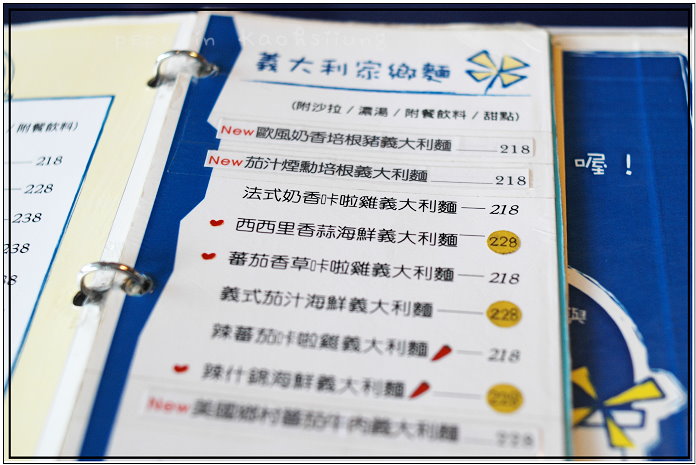 義大利家鄉麵
(附沙拉 / 濃湯 / 附餐飲料 / 甜點)
New歐風奶香培根豬義大利麵 218
New茄汁煙勳培根義大利麵 218
法式奶香咔啦雞義大利麵 218
西西里香蒜海鮮義大利麵 228
蕃茄香草咔啦雞義大利麵 218
義式茄汁海鮮義大利麵 228
辣蕃茄咔啦雞義大利麵 218
辣什錦海鮮義大利麵 228
New美國鄉村蕃茄牛肉義大利麵 228
/ 附餐飲料)
218
228
238
238
喔！
與